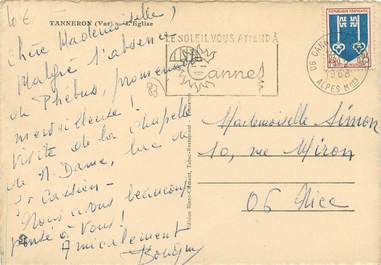 10 €
TANNERON (Var) - L'Église
Chère Mademoiselle,
Malgré l'absence
de Phébus, promenade
merveilleuse !
Visite de la Chapelle
de N. Dame, lac de
St Cassien -
Nous avons beaucoup
pensé à vous !
Amicalement
83
LE SOLEIL VOUS ATTEND À
Cannes
RÉPUBLIQUE FRANÇAISE
06 CANNES
1966
ALPES MMES
Mademoiselle Simon
10, rue Miron
06 Nice